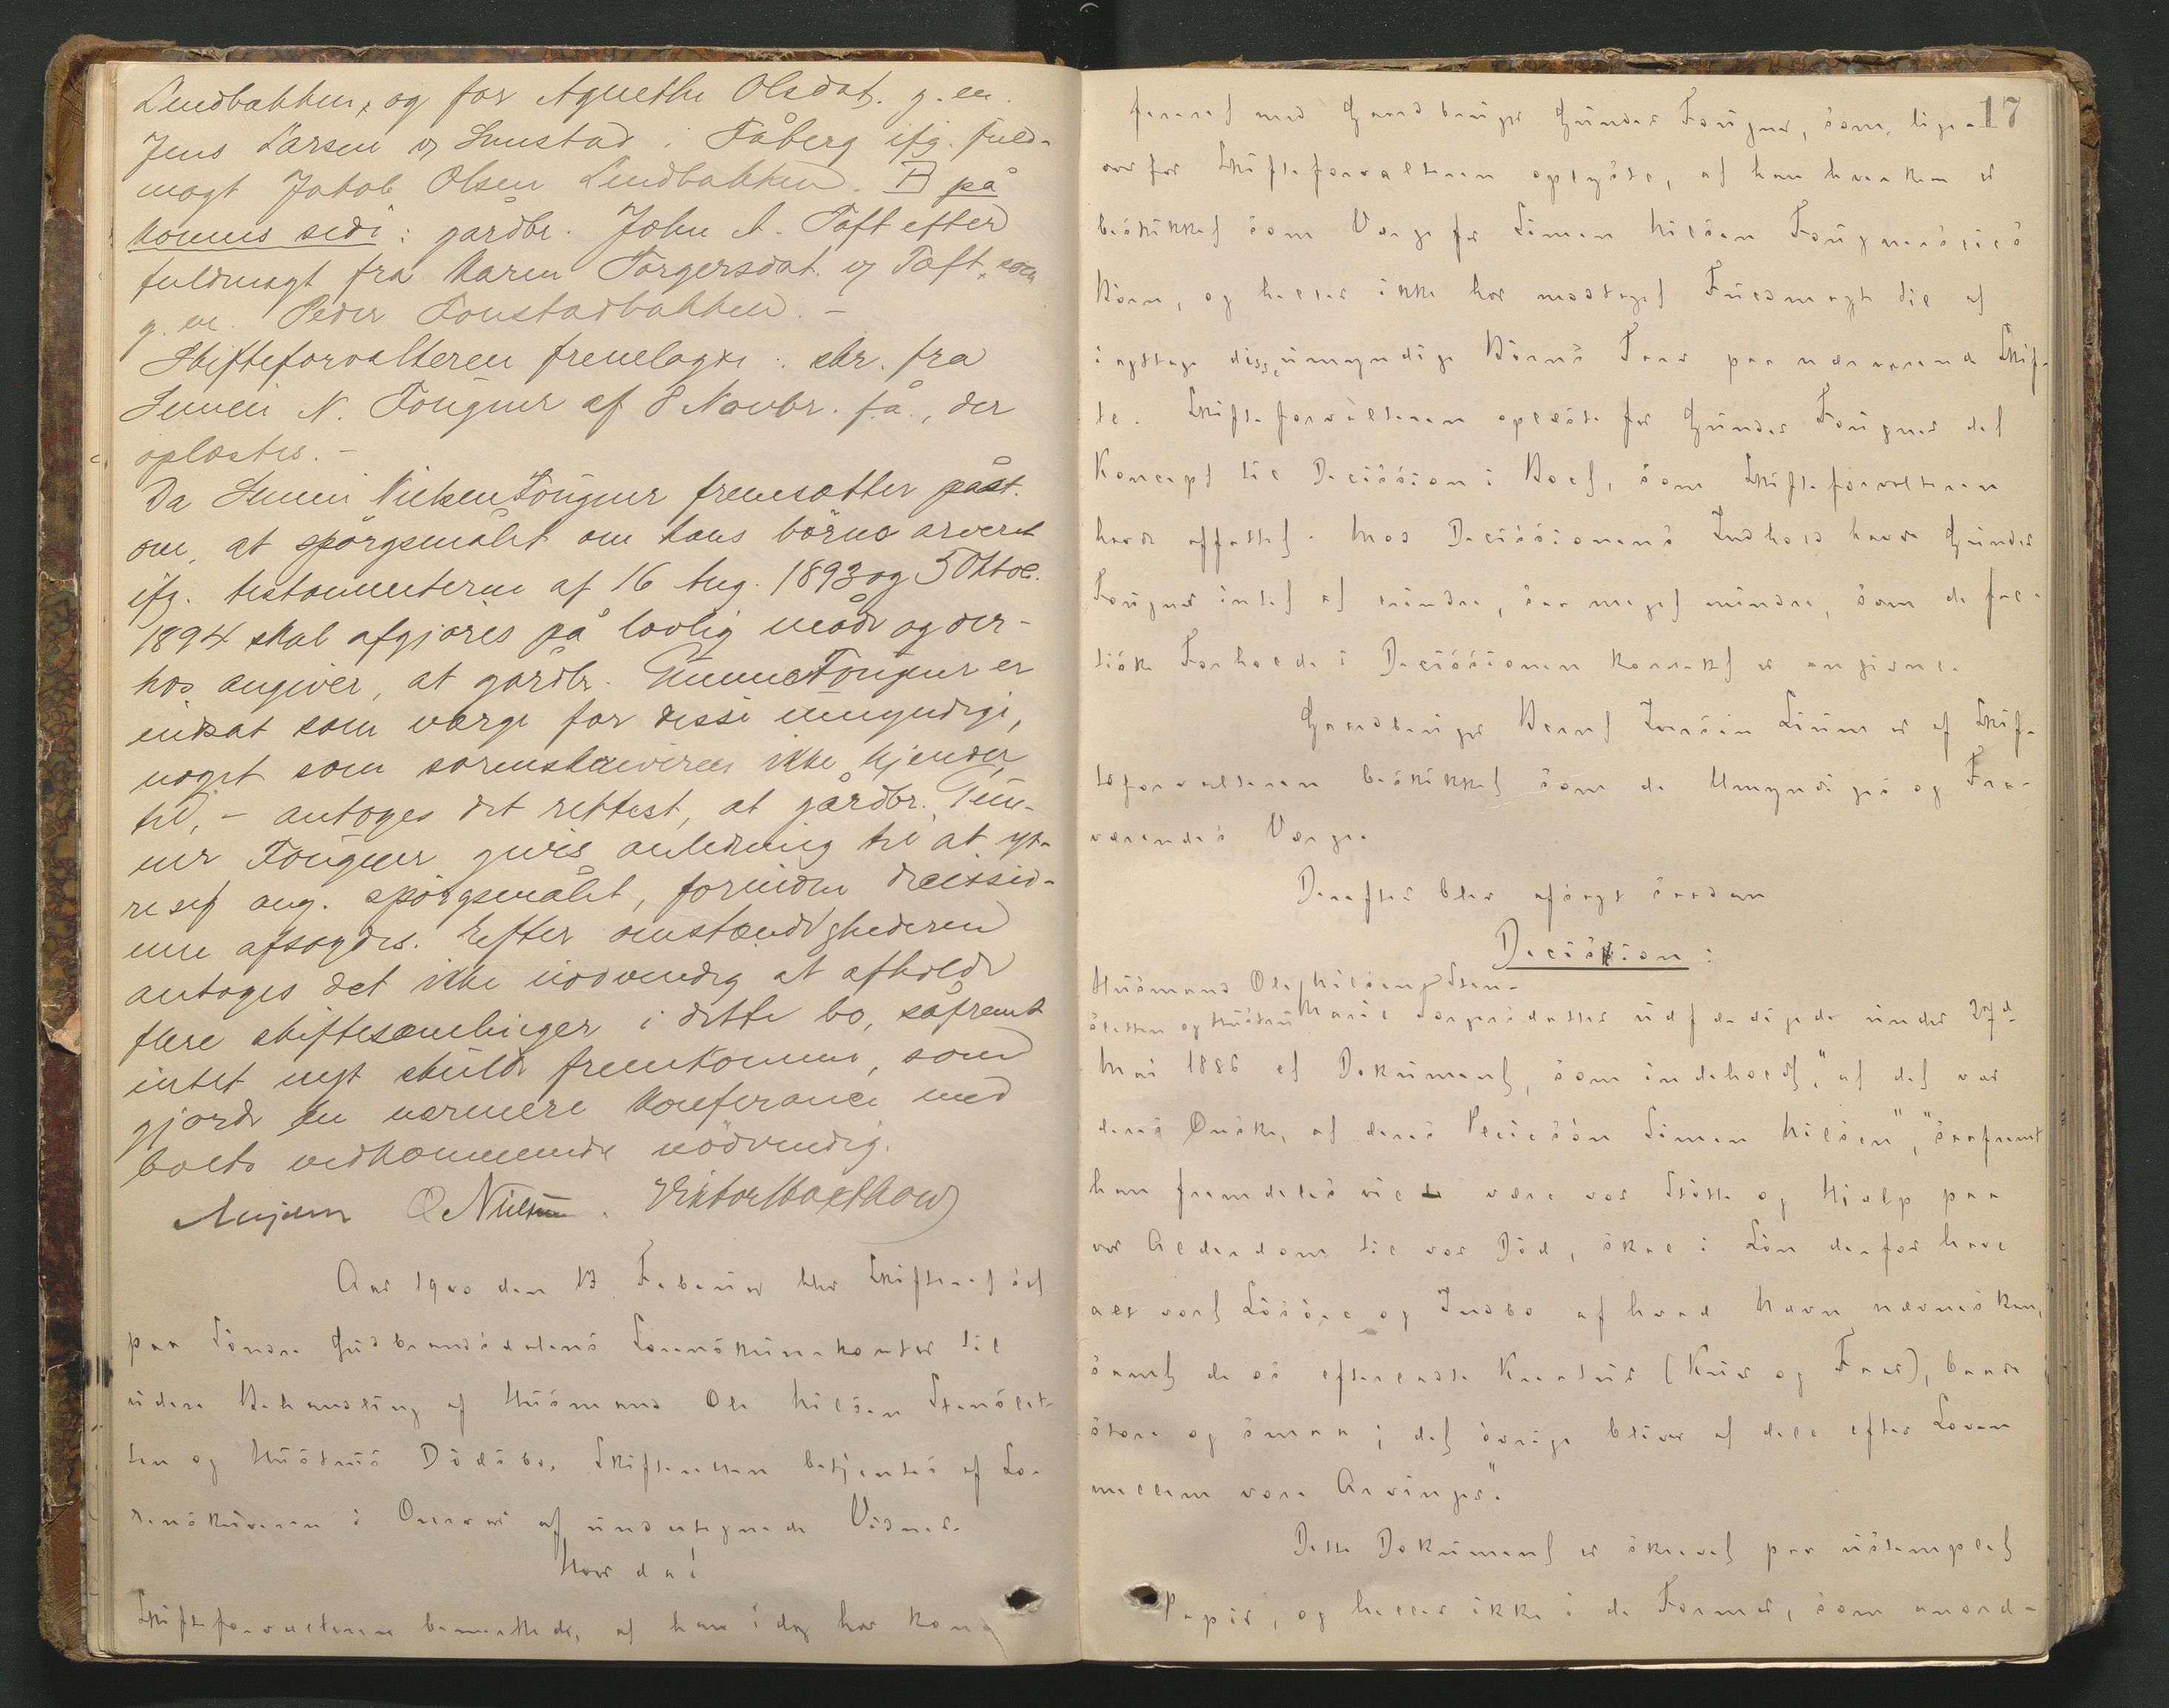 Lendbakken, og for Agnethe Olsdat. g. m.
Jens Larsen og Sunstad i Fåberg ifg. fuld-
magt Jakob Olsen Lendbakken. B på
konens side: gårdbr. John A. Toft efter
fuldmagt fra Karen Torgersdat. og Toft, som
g. m. Peder Fonstadbakken. -
Skifteforvalteren fremlagde: skr. fra
Simen N. Fougner af 8 Novbr. f.å., der
oplæstes. -
Da Simen Nielsen Fougner fremsætter påst.
om, at spörgsmålet om hans börns arveret
ifg. testamenterne af 16 Aug. 1893 og 5 Oktbr.
1894 skal afgjöres på lovlig måde og der-
hos angiver, at gårdbr. Gunner Fougner er
indsat som værge for disse umyndige,
noget som sorenskriveren ikke kjender
til, - antoges det rettest, at gårdbr. Gun-
ner Fougner gives anledning til at yt-
re sig ang. spörgsmålet, forinden decissio-
nen afsagdes. Efter omstændighederne
antoges det ikke nödvendig at afholde
flere skiftesamlinger i dette bo, såfremt
intet nyt skulde fremkomme, som
gjorde en nærmere konferance med
boets vedkommende nödvendig.
Mejdell O Nielsen. Viktor Waelhow
Aar 1900 den 13 Februar blev Skifteret sat
paa Söndre Gudbrandsdalens Sorenskriverkontor til
videre Behandling af Husmand Ole Nilsen Stenslet-
ten og Hustrus Dödsbo. Skifteretten betjentes af So-
renskriveren i Overvær af undertegnede Vidner.
Hvorda!
Skifteforvalteren bemærkede, at han idag har kon-
17
fereret med Gaardbruger Gunder Fougner, som lige-
overfor Skifteforvalteren oplyste, at han hverken er
beskikket som Værge for Simen Nilsen Fougnerseies
Börn, og heller ikke har modtaget Fuldmagt til at
iagttage disse umyndige Börns Tarv paa nærværende Skif-
te. Skifteforvalteren oplæste for Gunder Fougner det
Koncept til Decission i Boet, som Skifteforvalteren
havde affattet. Mod Decissionens Indhold havde Gunder
Fougner intet at erindre, saa meget mindre, som de fac-
tiske Forholde i Decissionen korrekt er angivne.
Gaardbruger Bernt Iversen Lium er af Skif-
teforvalteren beskikket som de Umyndiges og Fra-
værendes Værge.
Derefter blev afsagt saadan
Decission:
Husmand Ole Nilsen Sten-
sletten og Hustru Marie Torgersdatter udfærdigede under 27de
Mai 1886 et Dokument, som indeholdt, "at det var
deres Önske, at deres Pleiesön Simen Nilsen", "saafremt
han fremdeles vilde være vor Stötte og Hjælp paa
vor Alderdom til vor Död, skal i Lön derfor have
alt vort Lösöre og Indbo af hvad Navn nævnes kan,
samt de os efterladte Kreatur (Kuer og Faar), baade
store og smaa; det övrige bliver at dele efter Loven
mellem vore Arvinger".
Dette Dokument er skrevet paa ustemplet
Papir, og heller ikke i de Former, som anord-